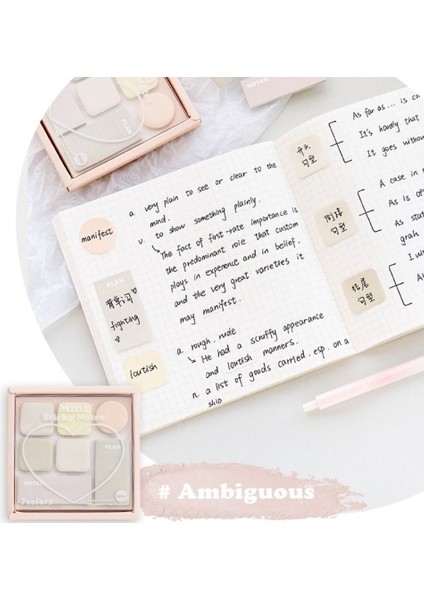 NOTES
manifest
a. very plain to see or clear to the
mind.
v. to show something plainly.
↳ The fact of first-rate importance is
the predominant role that custom
plays in experience and in belief,
and the very great varieties it
may manifest.
PLAN
背单词
fighting
loutish
a. rough. rude
↳ He had a scruffy appearance
and loutish manners.
n. a list of goods carried. esp. on a
ship
As far as... is c
It's handy that
It goes withou
开头
句型
A case in
As is o
As stat
grah
句型
I w
结尾
句型
As
A
Mini
Sticky Notes
PLAN
NOTES
7colors
# Ambiguous